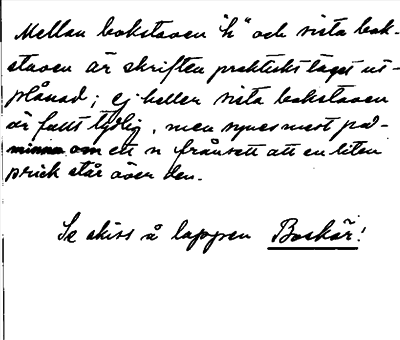 Mellan bokstaven "h" och sista bok-
staven är skriften praktiskt taget ut-
plånad; ej heller sista bokstaven
är fullt tydlig, men synes mest på-
minna om ett n frånsett att en liten
prick står över den.
Se skiss å lappen Boskär!